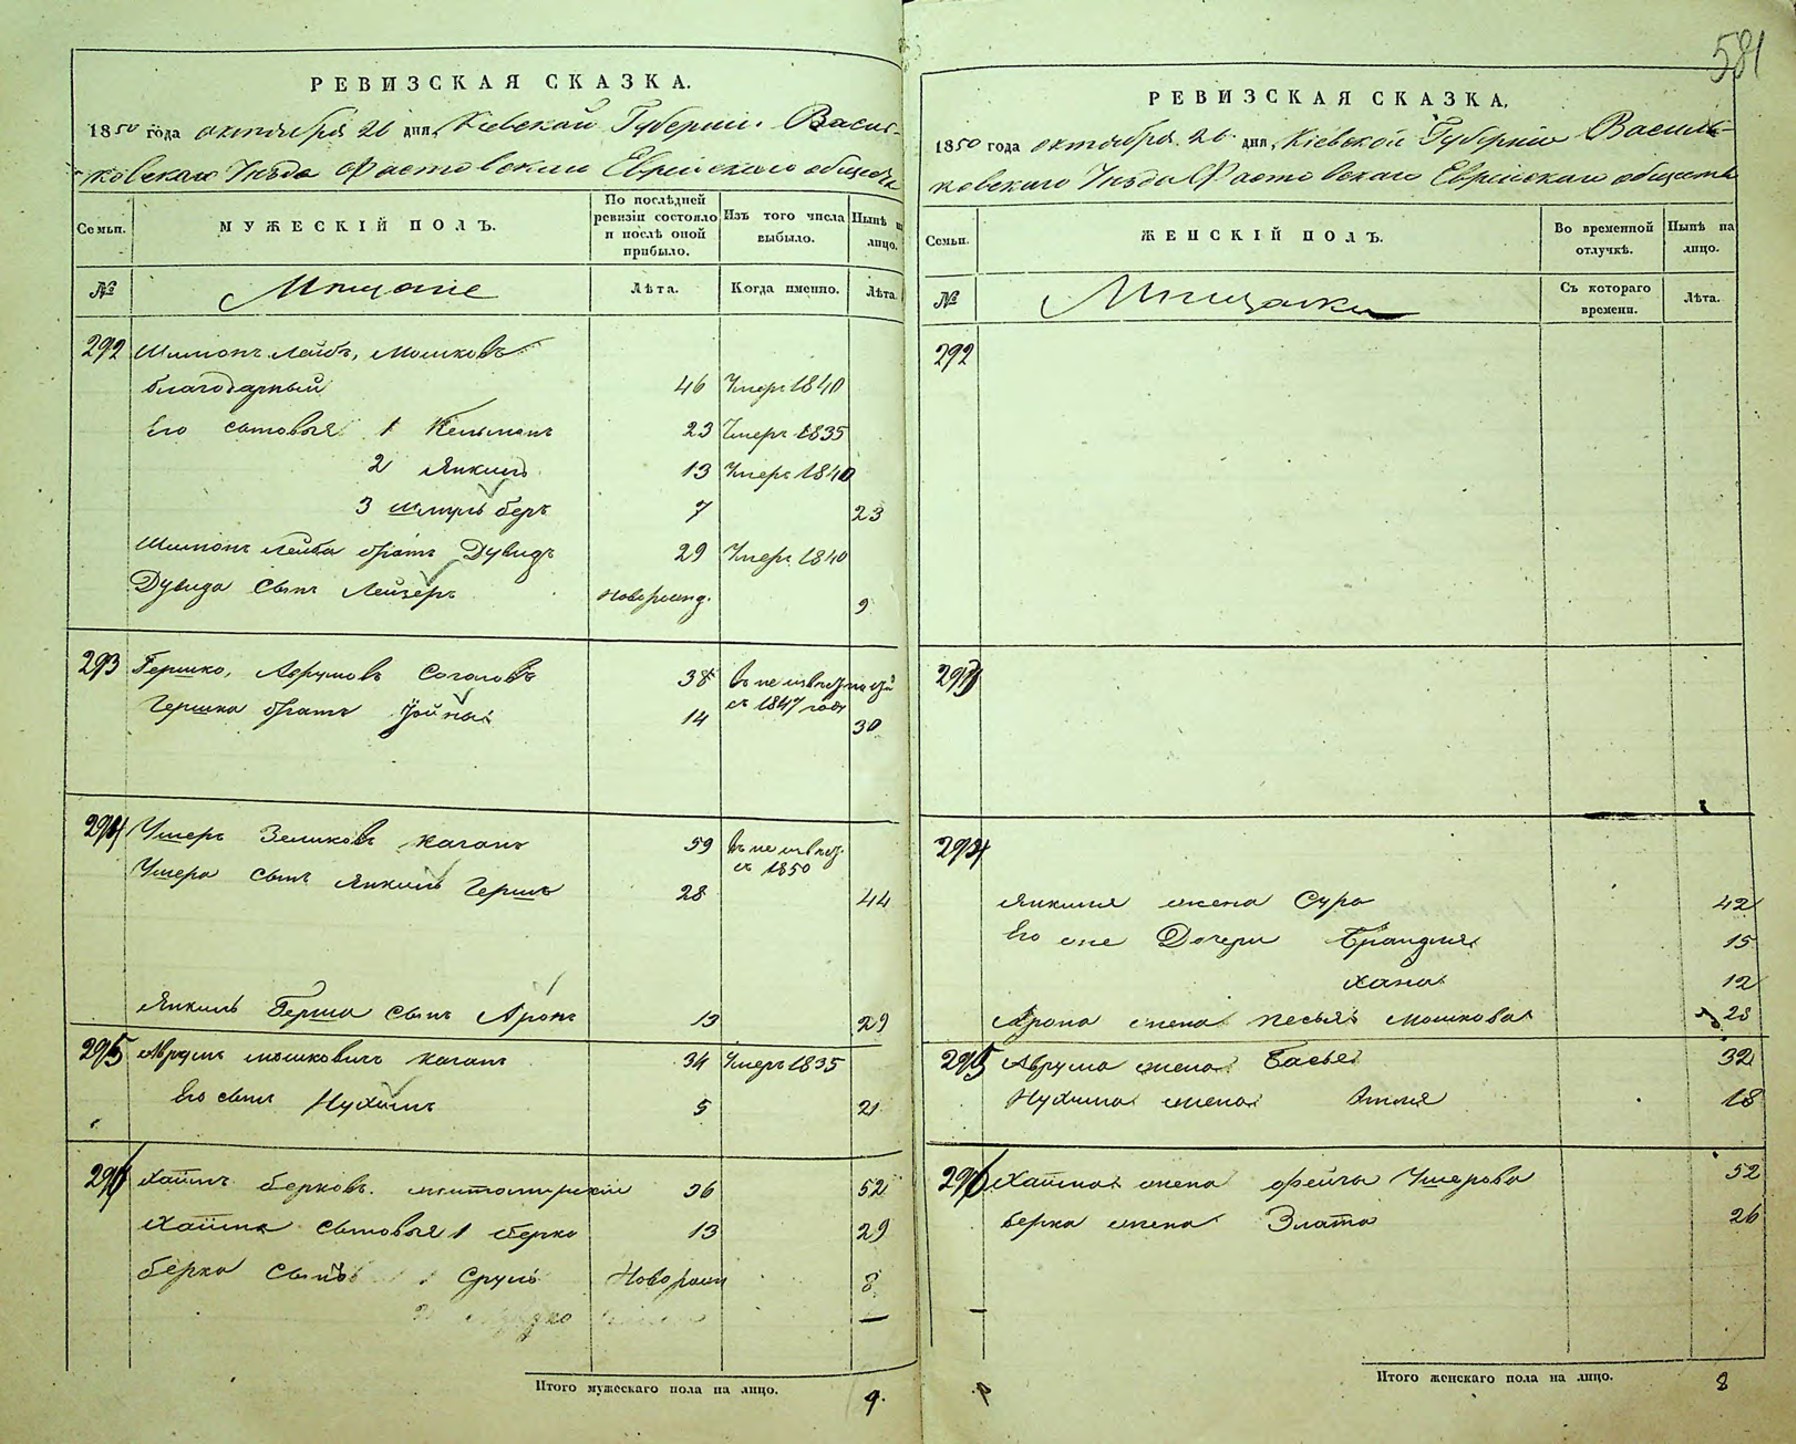 581
РЕВИЗСКАЯ СКАЗКА.
1850 года октября 26 дня, Кіевской Губерніи Васил-
ковскаго Уѣзда Фастовскаго Еврейскаго общества
Семьи.
МУЖЕСКІЙ ПОЛЪ.
По послѣдней ревизіи состояло и послѣ оной прибыло.
Изъ того числа выбыло.
Нынѣ на лицо.
№
Мѣщане
Лѣта.
Когда именно.
Лѣта.
292 Шимонъ Лейбъ, Мошковъ
благодарный 46 Умеръ 1840
Его сыновья 1 Кельманъ 23 Умеръ 1835
2 Янкель 13 Умеръ 1840
3 Шмуль беръ 7 23
Шимонъ Лейба братъ Дувидъ 29 Умеръ 1840
Дувида сынъ Лейзеръ новорожд. 9
293 Гершко, Аврумовъ 38 въ неизвѣстной
съ 1847 года
Гершка братъ 14 30
294 Ушеръ Зельковъ Каганъ 59 въ неизвѣс.
съ 1850
Ушера сынъ Янкель Гершъ 28 44
Янкель Герша сынъ Аронъ 13 29
295 Аврумъ Мошковичъ Каганъ 34 Умеръ 1835
Его сынъ Нухимъ 5 21
296 Хаимъ Берковъ Житомирскій 36 52
Хаима сыновья 1 Берко 13 29
Берка сынъ Сруль Новорож 8
—
Итого мужескаго пола на лицо. 9.
РЕВИЗСКАЯ СКАЗКА.
1850 года октября 26 дня, Кіевской Губерніи Василь-
ковскаго Уѣзда Фастовскаго Еврейскаго общества
Семьи.
ЖЕНСКІЙ ПОЛЪ.
Во временной отлучкѣ.
Нынѣ на лицо.
№
Мѣщанки
Съ котораго времени.
Лѣта.
292
293
294
Янкеля жена Сура 42
Его же Дочери Брандля 15
Хана 12
Арона жена Песья Мошкова 28
295 Аврума жена Басья 32
Нухима жена 18
296 Хаима жена Фейга Ушерова 52
Берка жена Злата 26
—
Итого женскаго пола на лицо. 8